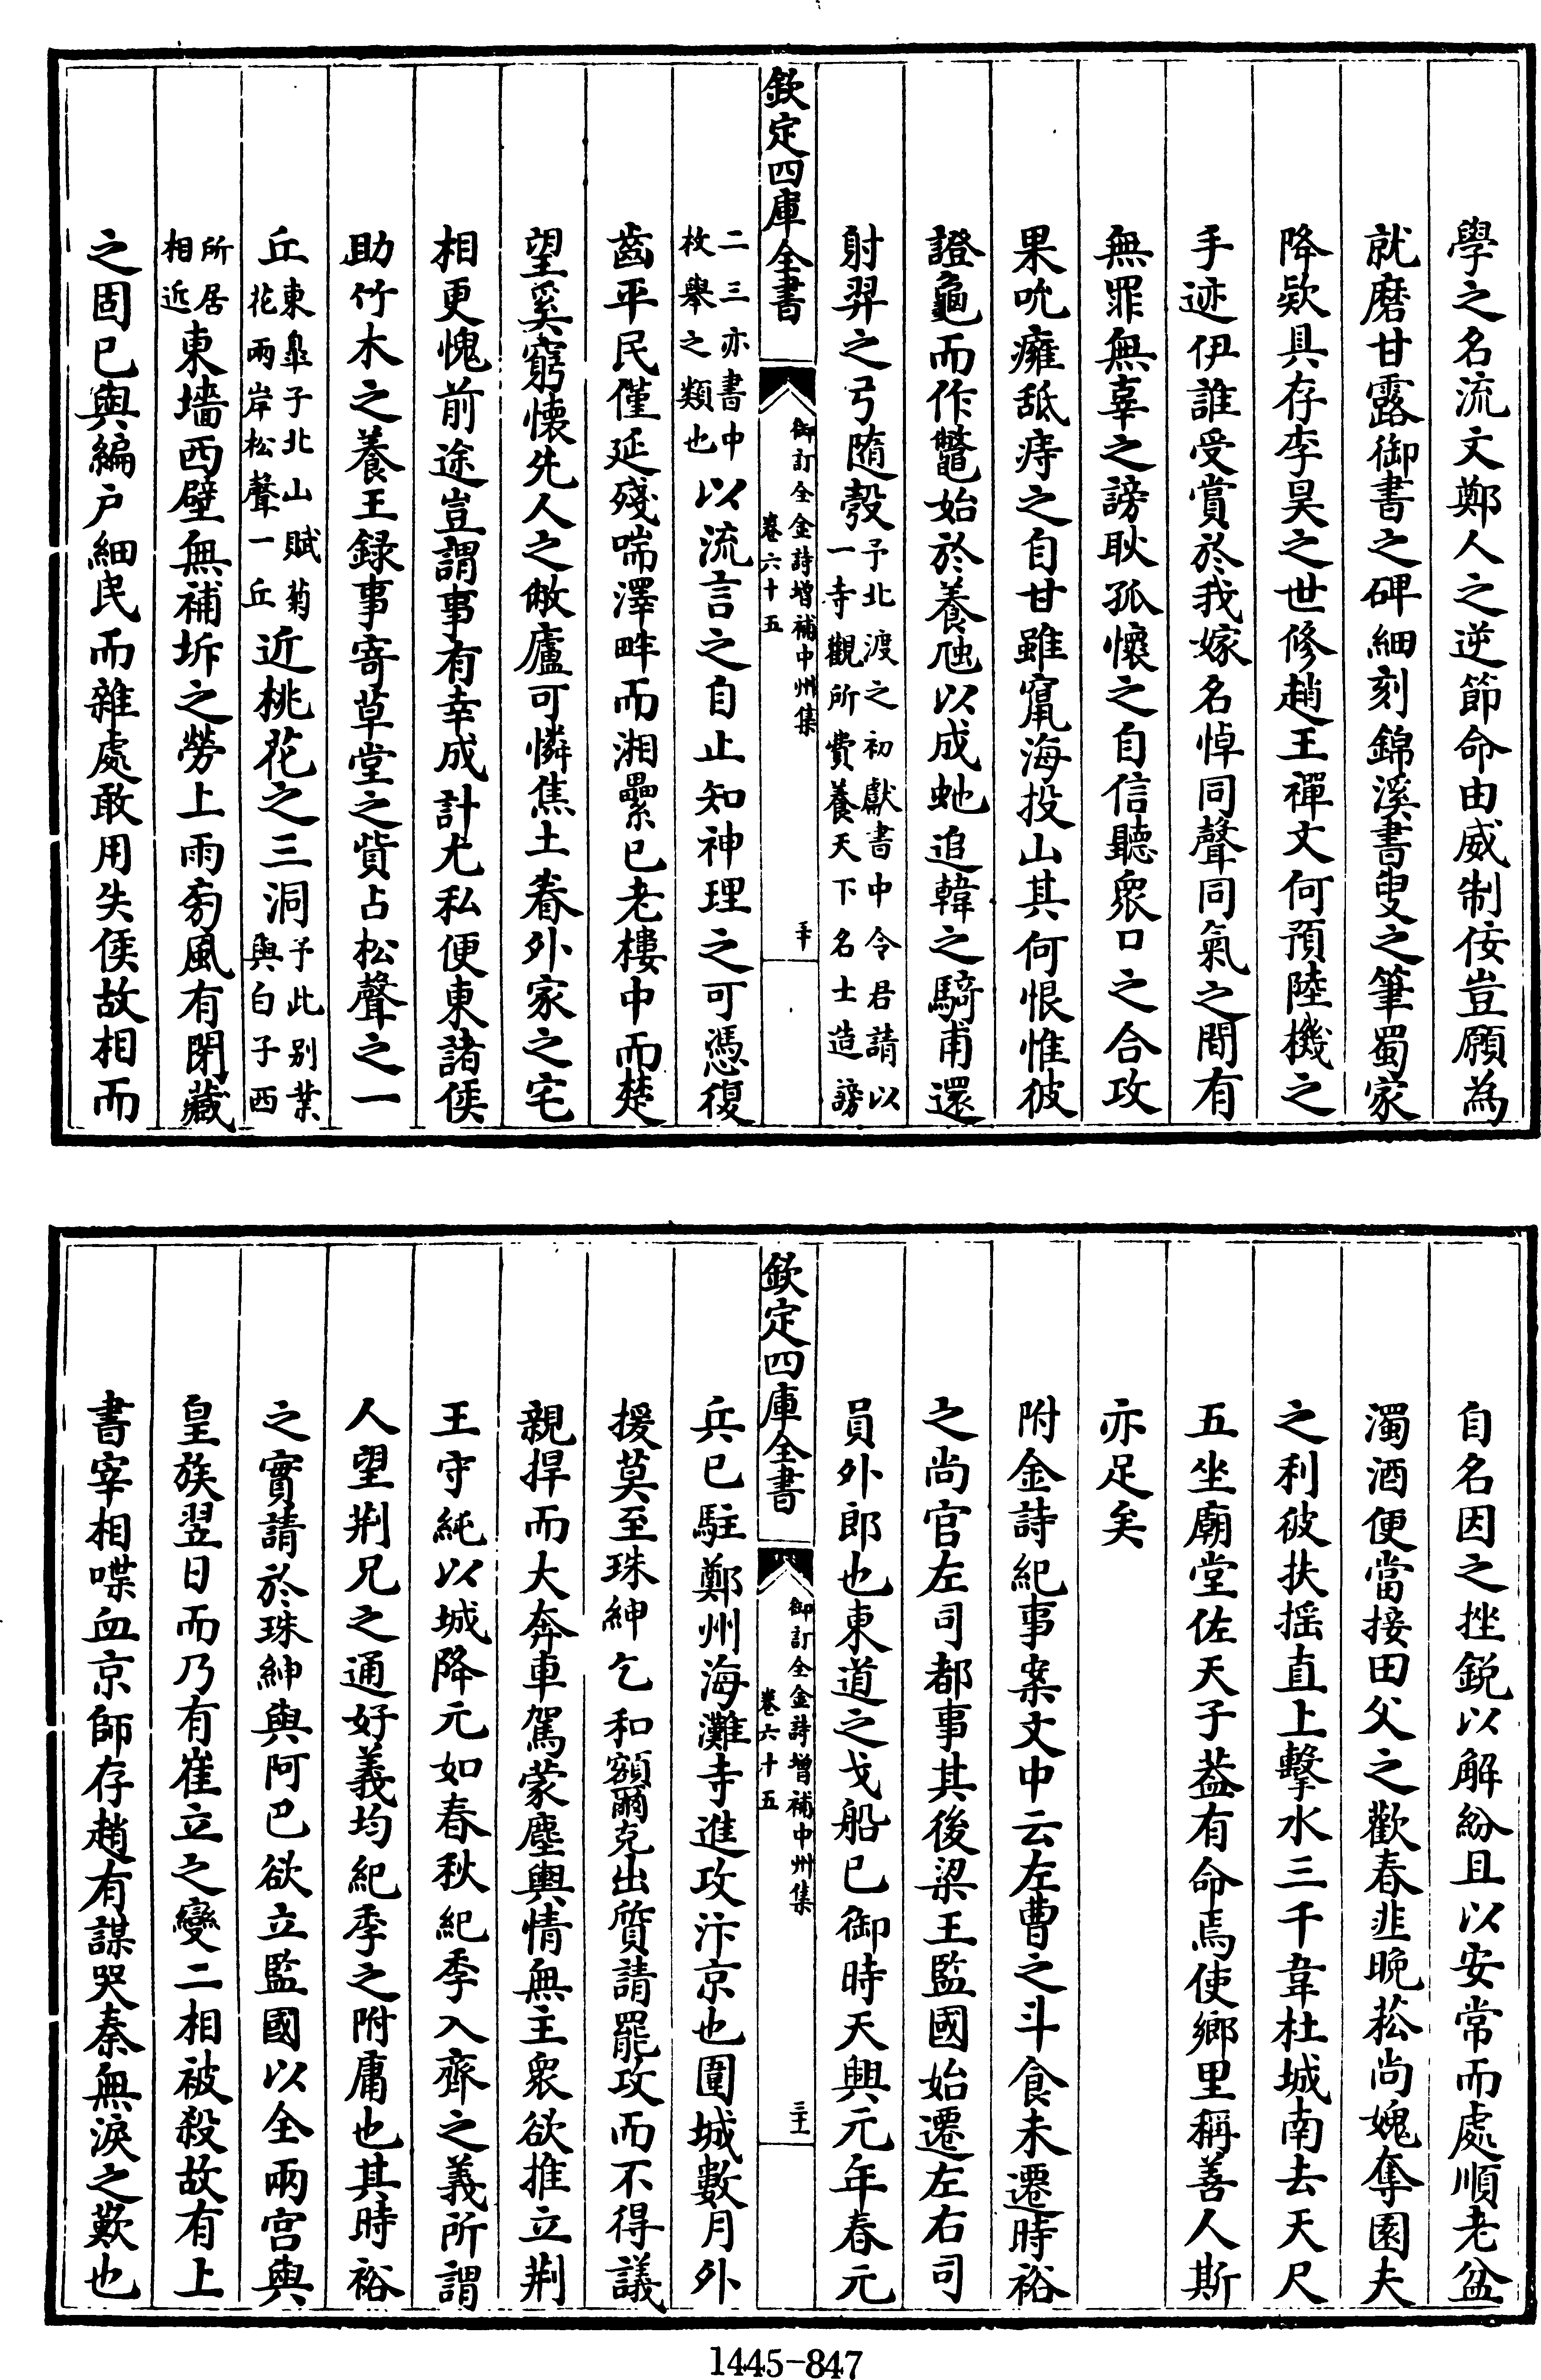 學之名流文鄭人之逆節命由威制佞豈願為
就磨甘露御書之碑細刻錦溪書叟之筆蜀家
降欵具存李昊之世修趙王禪文何預陸機之
手迹伊誰受賞於我嫁名悼同聲同氣之間有
無罪無辜之謗耿孤懷之自信聽衆口之合攻
果吮癰舐痔之自甘雖竄海投山其何恨惟彼
證龜而作鼈始於養虺以成虵追韓之騎甫還
射羿之弓隨彀予北渡之初獻書中令君請以
一寺觀所費養天下名士造謗
欽定四庫全書
御訂全金詩增補中州集
卷六十五
三十
二三亦書中
枚舉之類也以流言之自止知神理之可憑復
齒平民僅延殘喘澤畔而湘纍已老樓中而楚
望奚窮懷先人之敝廬可憐焦土眷外家之宅
相更愧前途豈謂事有幸成計尤私便東諸侯
助竹木之養王録事寄草堂之貲占松聲之一
丘東臯子北山賦菊
花兩岸松聲一丘近桃花之三洞予此别業
與白子西
所居
相近東墻西壁無補坼之勞上雨旁風有閉藏
之固已與編户細民而雜處敢用失侯故相而
自名因之挫鋭以解紛且以安常而處順老盆
濁酒便當接田父之歡春韭晚菘尚媿奪園夫
之利彼扶摇直上擊水三千韋杜城南去天尺
五坐廟堂佐天子葢有命焉使鄉里稱善人斯
亦足矣
附金詩紀事案文中云左曹之斗食未遷時裕
之尚官左司都事其後梁王監國始遷左右司
員外郎也東道之戈船已御時天興元年春元
欽定四庫全書
御訂全金詩增補中州集
卷六十五
三十一
兵已駐鄭州海灘寺進攻汴京也圍城數月外
援莫至珠紳乞和額爾克出質請罷攻而不得議
親捍而大奔車駕蒙塵輿情無主衆欲推立荆
王守純以城降元如春秋紀季入齊之義所謂
人望荆兄之通好義均紀季之附庸也其時裕
之實請於珠紳與阿巴欲立監國以全兩宫與
皇族翌日而乃有崔立之變二相被殺故有上
書宰相喋血京師存趙有謀哭秦無淚之歎也
1445-847